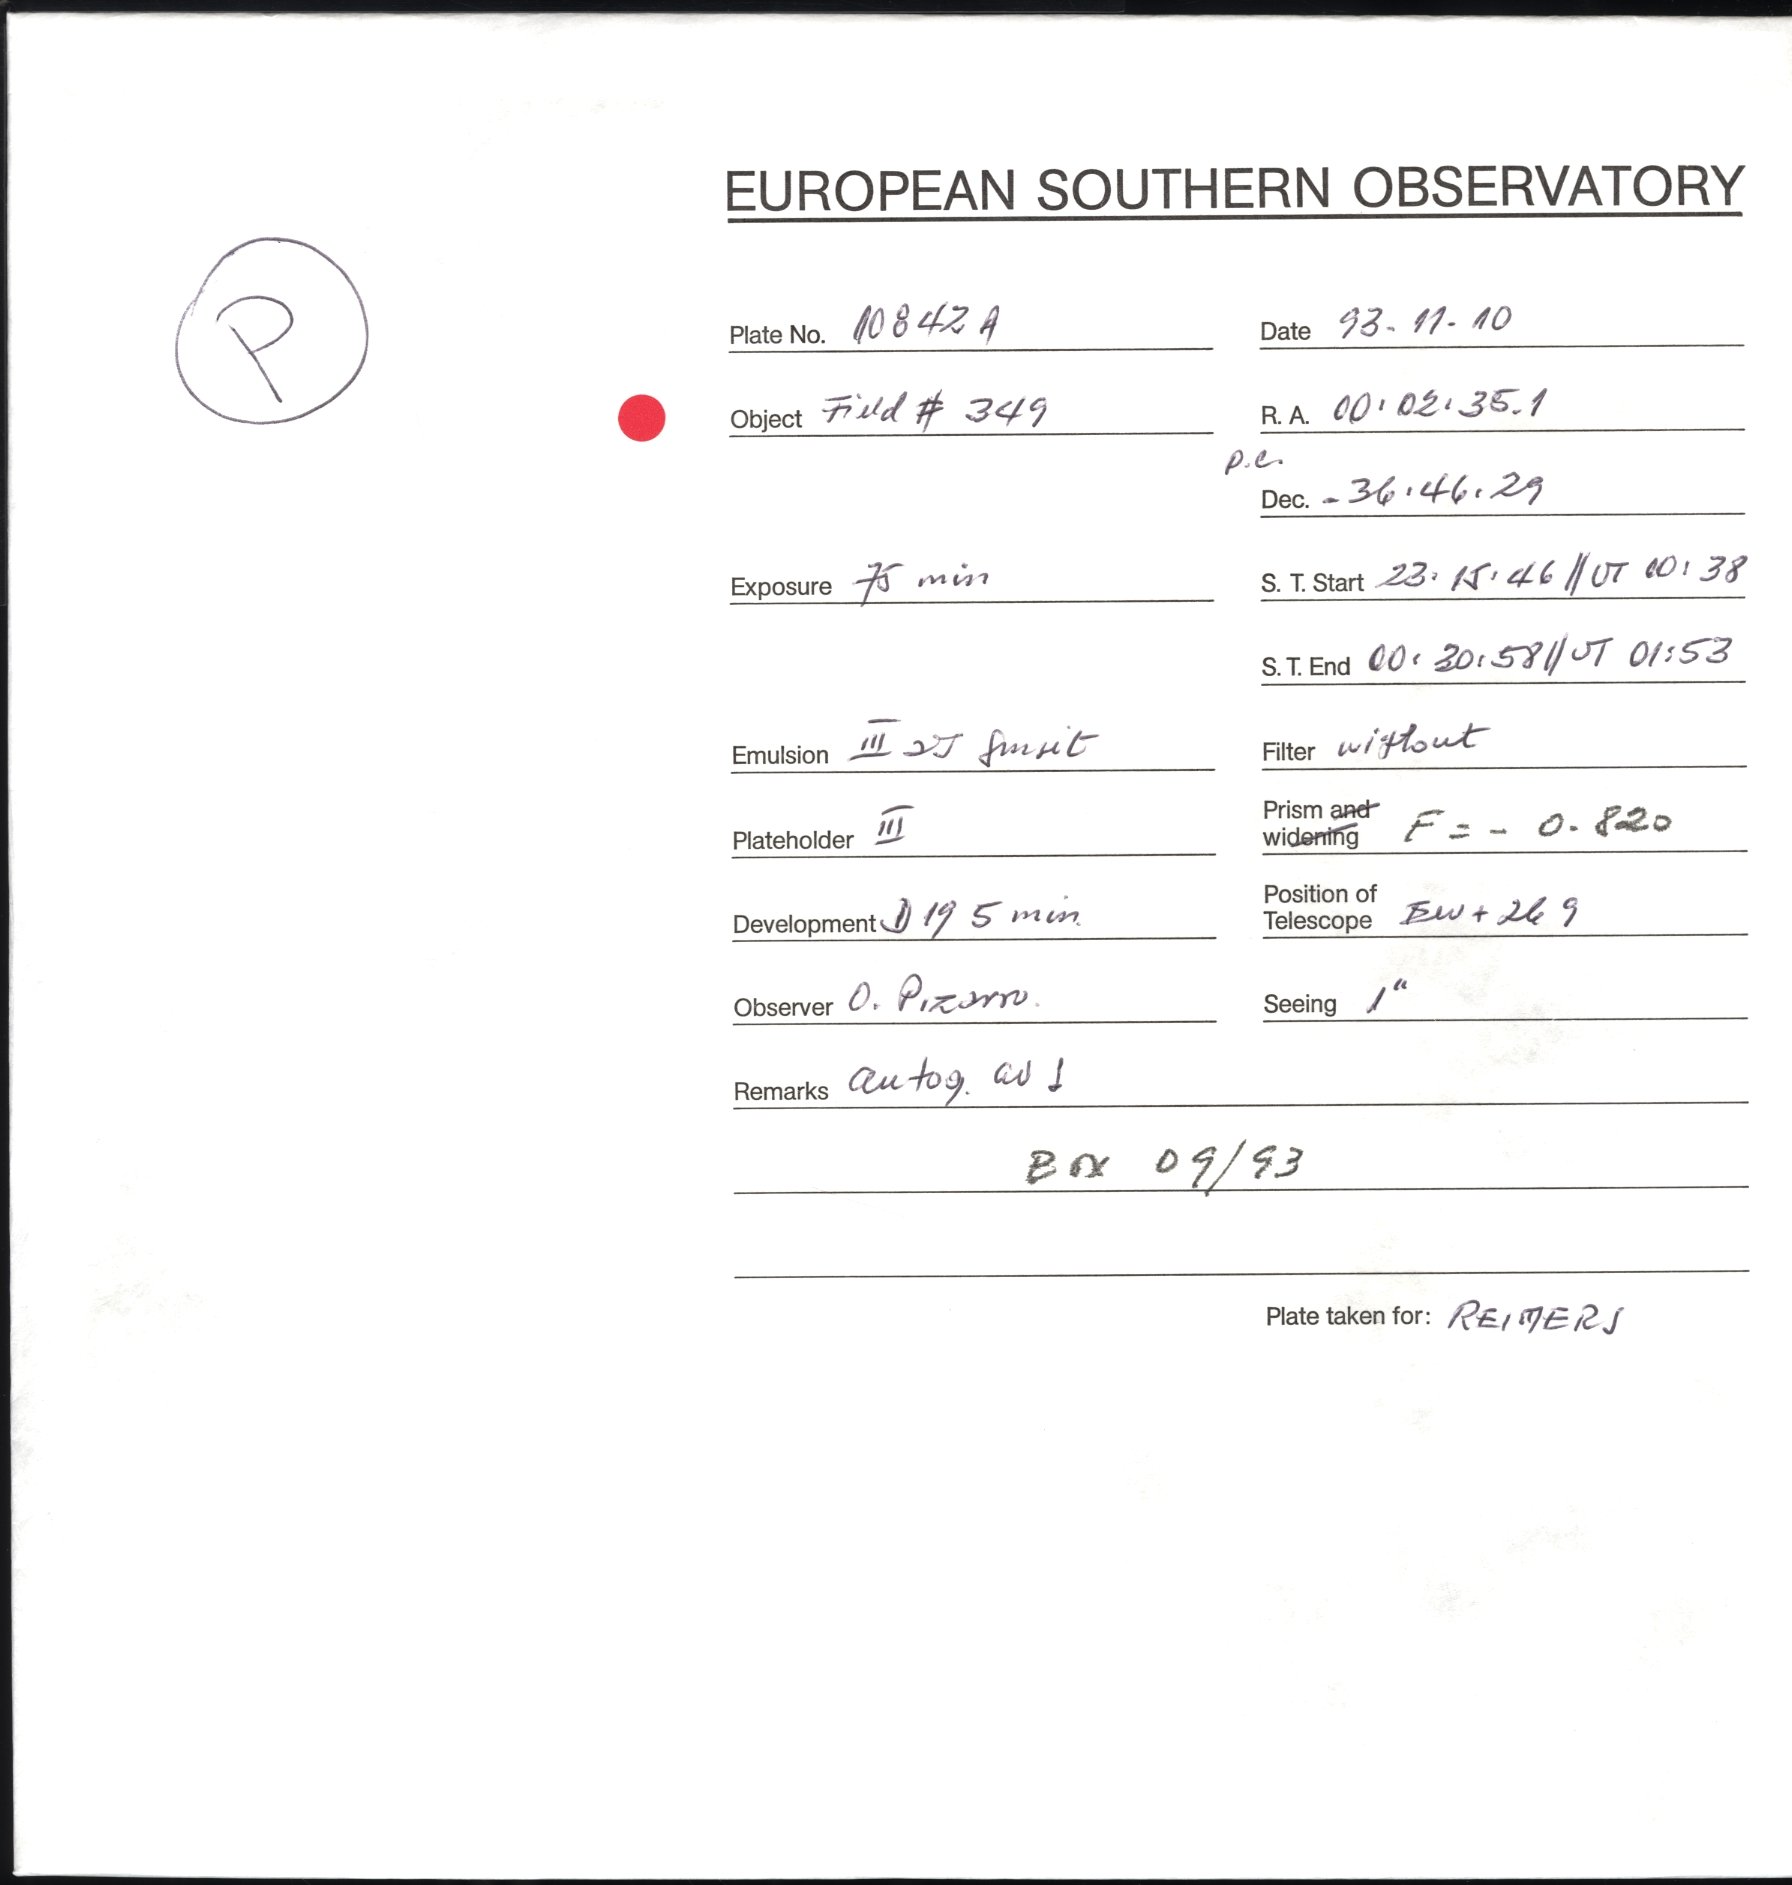 EUROPEAN SOUTHERN OBSERVATORY
P
Plate No. 10842A
Date 93-11-10
Object Field # 349
R. A. 00:02:35.1
p.c.
Dec. -36:46:29
Exposure 75 min
S. T. Start 23:15:46 // UT 00:38
S. T. End 00:30:58 // UT 01:53
Emulsion III
Filter without
Plateholder III
Prism and
widening F = - 0.820
Development D19 5 min
Position of
Telescope EW + 269
Observer O. Pizarro.
Seeing 1"
Remarks autog.
Box 09/93
Plate taken for: REIMERS